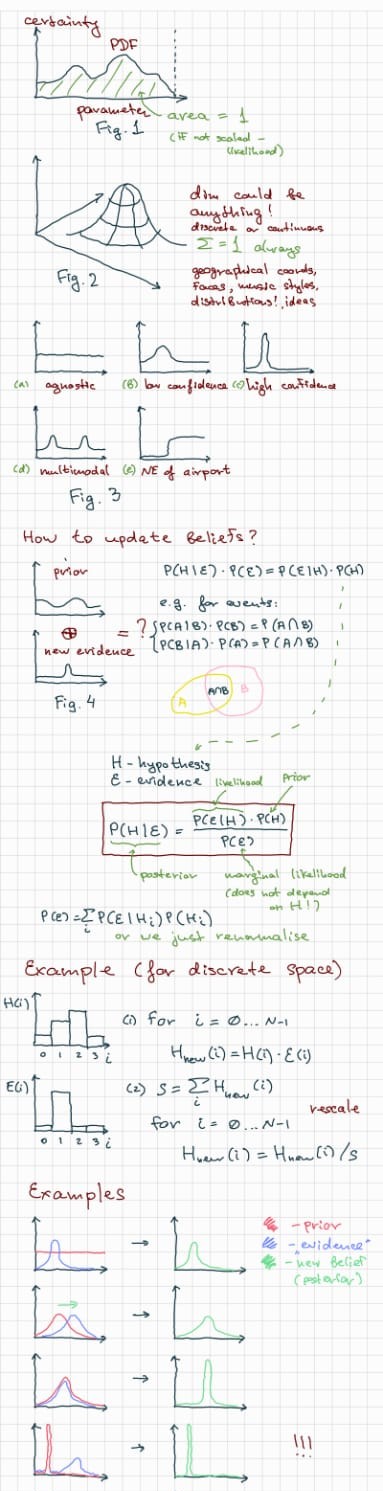 certainty
PDF
parameter
area = 1
Fig. 1
(if not scaled -
likelihood)
dim could be
anything!
discrete or continuous
Σ = 1 always
Fig. 2
geographical coords,
faces, music styles,
distributions!, ideas
(a) agnostic (b) low confidence (c) high confidence
(d) multimodal (e) NE of airport
Fig. 3
How to update beliefs?
prior
P(H|E) · P(E) = P(E|H) · P(H)
e.g. for events:
⊕ = ? { P(A|B) · P(B) = P(A∩B)
new evidence P(B|A) · P(A) = P(A∩B)
Fig. 4
A A∩B B
H - hypothesis
E - evidence
likelihood Prior
P(H|E) = P(E|H) · P(H)
P(E)
posterior
marginal likelihood
(does not depend
on H!)
P(E) = Σ P(E|Hi) P(Hi)
i
or we just renormalise
Example (for discrete space)
H(i)
(1) for i = 0 ... N-1
0 1 2 3 i
Hnew(i) = H(i) · E(i)
E(i)
(2) S = Σ Hnew(i)
i
rescale
for i = 0 ... N-1
0 1 2 3 i
Hnew(i) = Hnew(i) / S
Examples
- prior
- "evidence"
- new belief
(posterior)
!!!